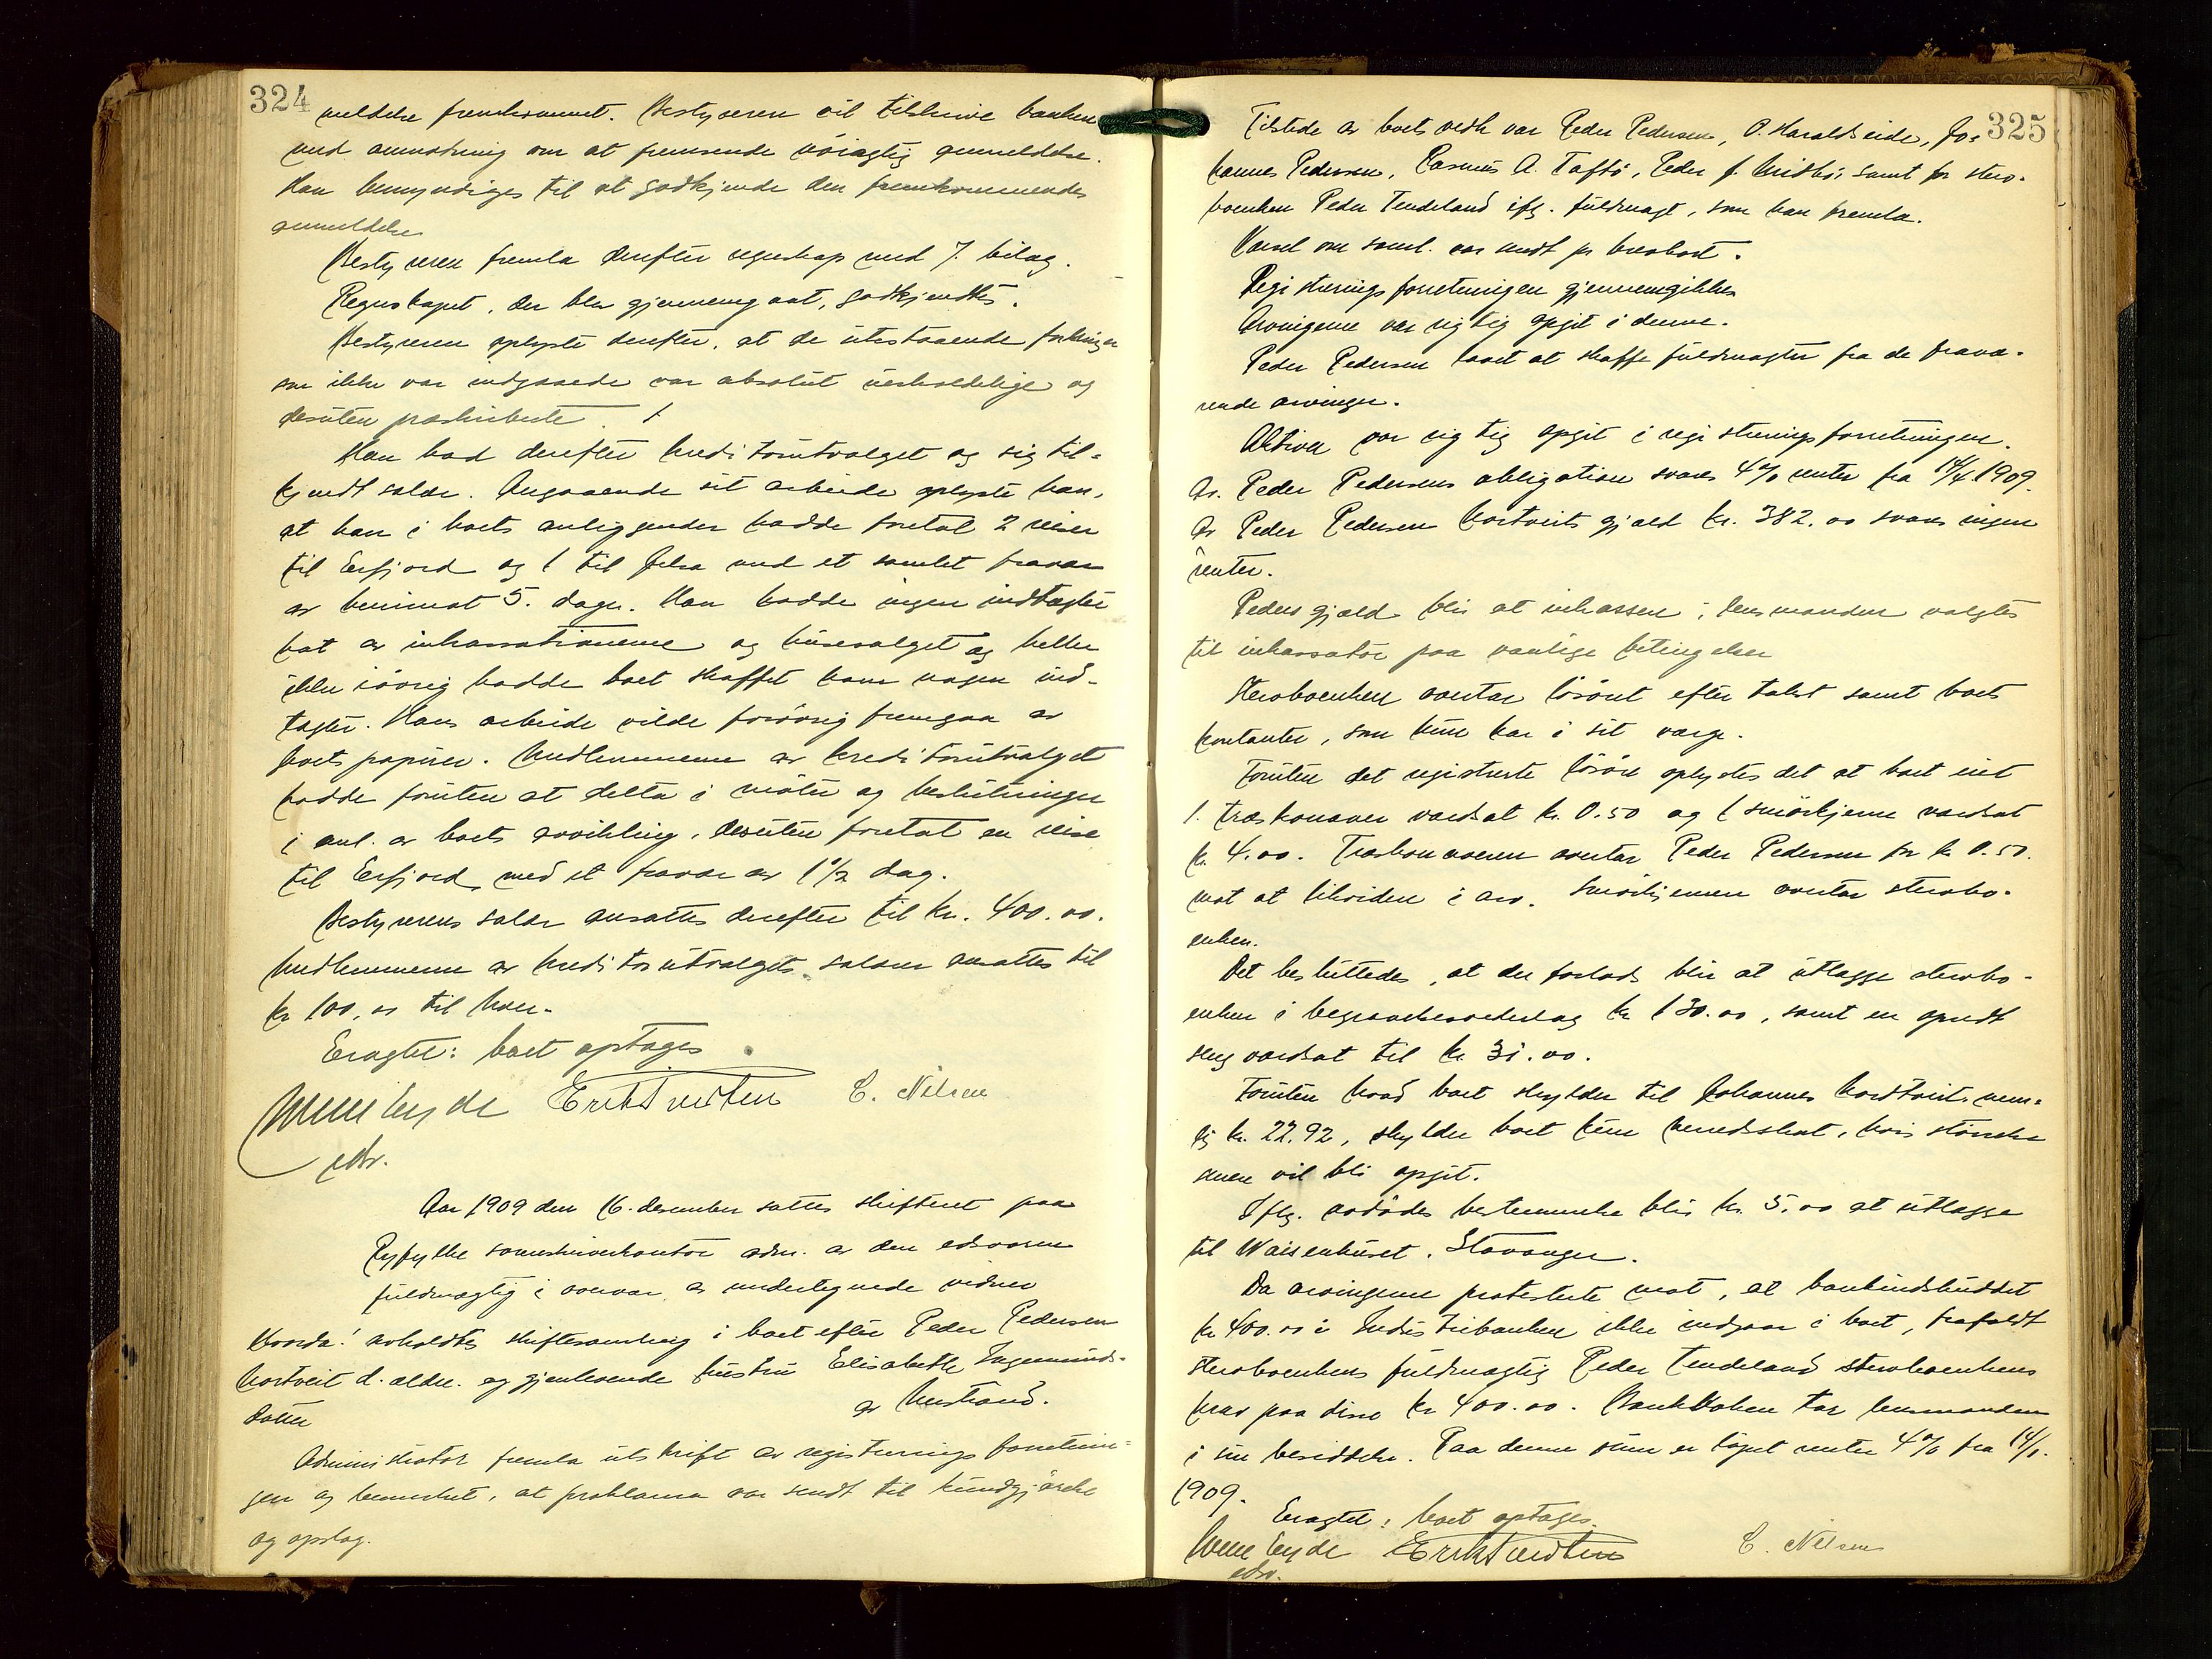 324
meldelse fremkommet. Bestyreren vil tilskrive banken
med anmodning om at fremsende nöiagtig anmeldelse.
Han bemyndiges til at godkjende den fremkommendes
anmeldelse
Bestyreren fremla derefter regnskap med 7. bilag.
Regnskapet, der blev gjennemgaat, godkjendtes.
Bestyreren oplyste derefter, at de utestaaende fordringer
som ikke var indgaaede var absolut uerholdelige og
desuten præskriberte. /.
Han bad derefter kreditorutvalget og sig til-
kjendt salær. Angaaende sit arbeide oplyste han,
at han i boets anliggender hadde foretat 2 reiser
til Erfjord og 1 til Jelsa med et samlet fravær
av henimot 5. dager. Han hadde ingen indtægter
hat av inkassationerne og husesalget og heller
ikke iövrig hadde boet skaffet ham nogen ind-
tægter. Hans arbeide vilde forövrig fremgaa av
boets papirer. Medlemmerne av kreditorutvalget
hadde foruten at delta i möter og beslutninger
i anl. av boets avvikling, desuten foretat en reise
til Erfjord med et fravær av 1 1/2 dag.
Bestyrerens salær ansattes derefter til kr. 400.00.
Medlemmerne av kreditorutvalgets salær ansattes til
kr 100,00 til hver.
Eragtet: boet optages.
Erik Tveiten C. Nilsen
edsv.
Aar 1909 den 16. desember sattes skifteret paa
Ryfylke sorenskriverkontor adm. av den edsvorne
fuldmægtig i overvær av undertegnede vidner
Hvorda! avholdtes skiftesamling i boet efter Peder Pedersen
Hortveit d. ældre. og gjenlevende hustru Elisabeth Ingemunds-
datter
av Nerstrand.
Administrator fremla utskrift av registreringsforretnin-
gen og bemerket, at proklama var sendt til kundgjörelse
og opslag.
325
Tilstede av boets vedk var Peder Pedersen, O. Haraldseide, Jo-
hannes Pedersen, Rasmus A. Taftö, Peder J. Midbö, samt for sterv-
boenken Peder Tendeland iflg. fuldmagt, som han fremla.
Varsel om saml. var sendt pr brevkort.
Registreringsforretningen gjennemgikkes
Arvingerne var rigtig opgit i denne.
Peder Pedersen lovet at skaffe fuldmagter fra de fravæ-
rende arvinger.
Aktiva var rigtig opgit i registreringsforretningen.
Av. Peder Pedersens obligation svares 4% renter fra 14/4 1909.
Av Peder Pedersen Hortveits gjæld kr. 382.00 svares ingen
renter.
Peders gjæld blir at inkassere; lensmanden valgtes
til inkassator paa vanlige betingelser
Stervboenken overtar lösöret efter takst samt boets
kontanter, som hun har i sit værge.
Foruten det registrerte lösöre oplystes det at boet eiet
1. træskonaver værdsat kr. 0.50 og 1 smörkjerne værdsat
kr. 4.00. Træskonaveren overtar Peder Pedersen for kr 0.50.
mot at likvidere i arv. Smörkjernen overtar stervbo-
enken.
Det besluttedes, at der forlods blir at utlægge stervbo-
enken i begravelsesvederlag kr 130.00, samt en opredt
seng værdsat til kr 35.00.
Foruten hvad boet skylder til Johannes Hordtveit nem-
lig kr. 22.92, skylder boet kun herredsskat, hvis störrelse
senere vil bli opgit.
Iflg. avdödes bestemmelse blir kr. 5.00 at utlægge
til Waisenhuset. Stavanger.
Da arvingerne protesterte mot, at bankindskuddet
kr 400.00 i Industribanken ikke indgaar i boet, frafaldt
stervboenkens fuldmægtig Peder Tendeland stervboenkens
krav paa disse kr 400.00. Bankboken tar lensmanden
i sin besiddelse. Paa denne sum er löpet renter 4% fra 14/1.
1909.
Eragtet: boet optages.
Erik Tveiten C. Nilsen
edsv.